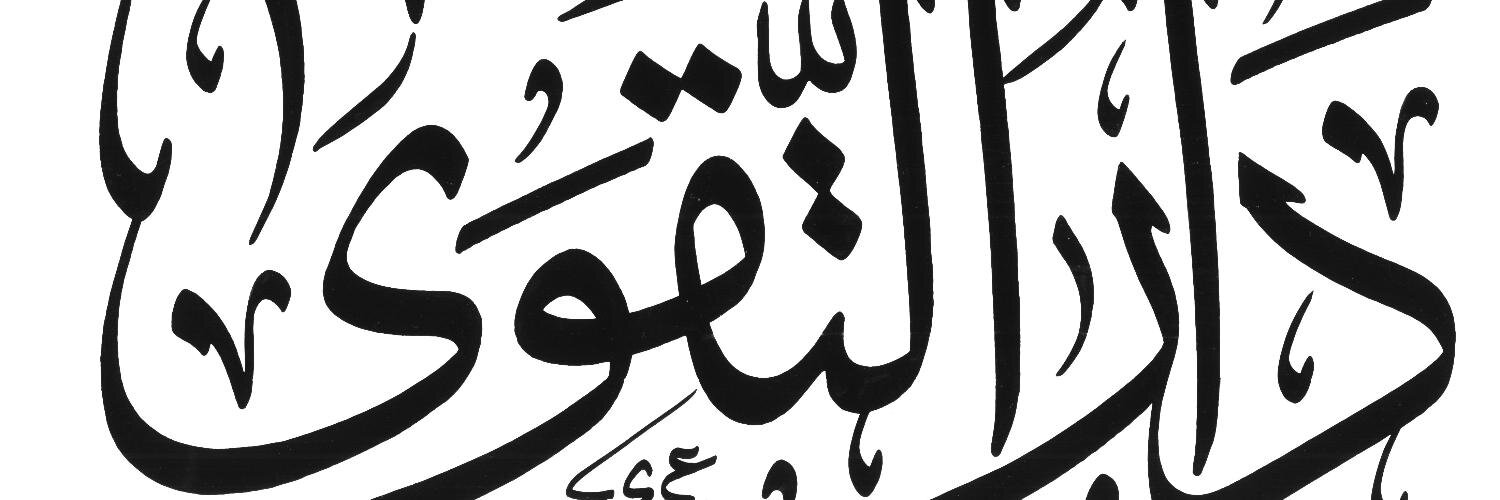 دار التقوى